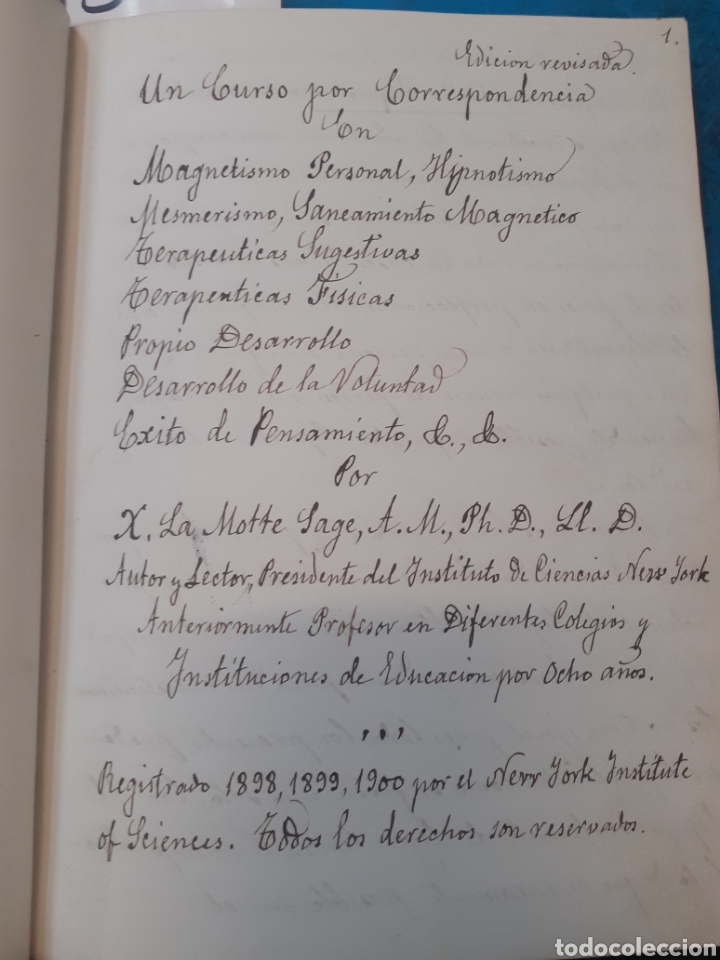 1.
Edicion revisada.
Un Curso por Correspondencia
En
Magnetismo Personal, Hipnotismo
Mesmerismo, Saneamiento Magnetico
Terapeuticas Sugestivas
Terapeuticas Fisicas
Propio Desarrollo
Desarrollo de la Voluntad
Exito de Pensamiento, &., &.
Por
X. La Motte Sage, A. M., Ph. D., Ll. D.
Autor y Lector, Presidente del Instituto de Ciencias New York
Anteriormente Profesor en Diferentes Colegios y
Instituciones de Educacion por Ocho años.
Registrado 1898, 1899, 1900 por el New York Institute
of Sciences. Todos los derechos son reservados.
todocoleccion